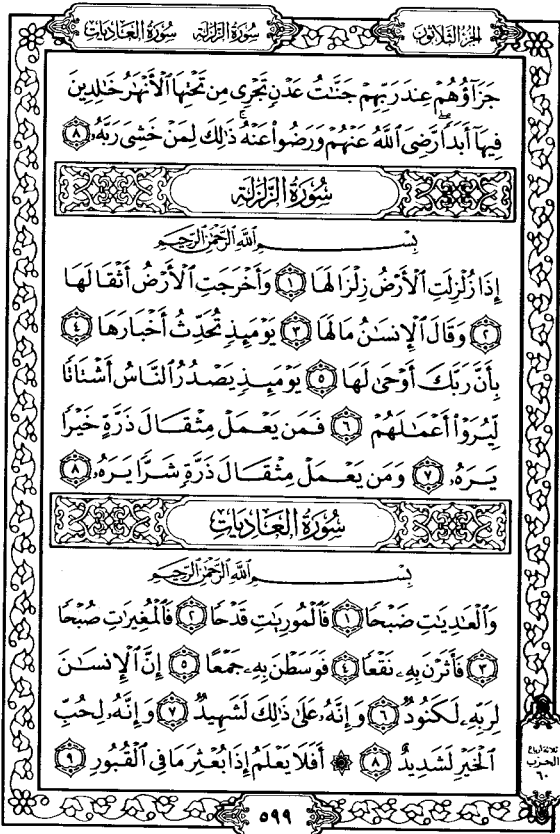 سُورَةُ الزَّلْزَلَةِ سُورَةُ العَادِيَاتِ
الجُزْءُ الثَّلَاثُونَ
جَزَآؤُهُمْ عِندَ رَبِّهِمْ جَنَّٰتُ عَدْنٍ تَجْرِى مِن تَحْتِهَا ٱلْأَنْهَٰرُ خَٰلِدِينَ
فِيهَآ أَبَدًاۖ رَّضِىَ ٱللَّهُ عَنْهُمْ وَرَضُوا۟ عَنْهُۚ ذَٰلِكَ لِمَنْ خَشِىَ رَبَّهُۥ ٨
سُورَةُ الزَّلْزَلَةِ
بِسْمِ ٱللَّهِ ٱلرَّحْمَٰنِ ٱلرَّحِيمِ
إِذَا زُلْزِلَتِ ٱلْأَرْضُ زِلْزَالَهَا ١ وَأَخْرَجَتِ ٱلْأَرْضُ أَثْقَالَهَا
٢ وَقَالَ ٱلْإِنسَٰنُ مَا لَهَا ٣ يَوْمَئِذٍ تُحَدِّثُ أَخْبَارَهَا ٤
بِأَنَّ رَبَّكَ أَوْحَىٰ لَهَا ٥ يَوْمَئِذٍ يَصْدُرُ ٱلنَّاسُ أَشْتَاتًا
لِّيُرَوْا۟ أَعْمَٰلَهُمْ ٦ فَمَن يَعْمَلْ مِثْقَالَ ذَرَّةٍ خَيْرًا
يَرَهُۥ ٧ وَمَن يَعْمَلْ مِثْقَالَ ذَرَّةٍ شَرًّا يَرَهُۥ ٨
سُورَةُ العَادِيَاتِ
بِسْمِ ٱللَّهِ ٱلرَّحْمَٰنِ ٱلرَّحِيمِ
وَٱلْعَٰدِيَٰتِ ضَبْحًا ١ فَٱلْمُورِيَٰتِ قَدْحًا ٢ فَٱلْمُغِيرَٰتِ صُبْحًا
٣ فَأَثَرْنَ بِهِۦ نَقْعًا ٤ فَوَسَطْنَ بِهِۦ جَمْعًا ٥ إِنَّ ٱلْإِنسَٰنَ
لِرَبِّهِۦ لَكَنُودٌ ٦ وَإِنَّهُۥ عَلَىٰ ذَٰلِكَ لَشَهِيدٌ ٧ وَإِنَّهُۥ لِحُبِّ
ٱلْخَيْرِ لَشَدِيدٌ ٨ ۞ أَفَلَا يَعْلَمُ إِذَا بُعْثِرَ مَا فِى ٱلْقُبُورِ ٩
ثلاثة أرباع
الحزب
٦٠
٥٩٩